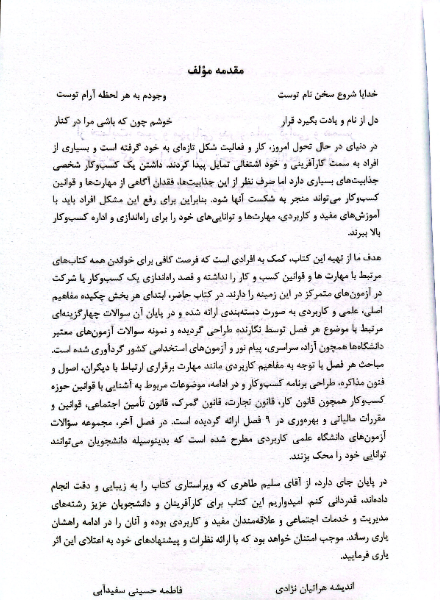 مقدمه مؤلف
خدایا شروع سخن نام توست وجودم به هر لحظه آرام توست
دل از نام و یادت بگیرد قرار خوشم چون که باشی مرا در کنار
در دنیای در حال تحول امروز، کار و فعالیت شکل تازه‌ای به خود گرفته است و بسیاری از
افراد به سمت کارآفرینی و خود اشتغالی تمایل پیدا کردند. داشتن یک کسب‌وکار شخصی
جذابیت‌های بسیاری دارد اما صرف نظر از این جذابیت‌ها، فقدان آگاهی از مهارت‌ها و قوانین
کسب‌وکار می‌تواند منجر به شکست آنها شود. بنابراین برای رفع این مشکل افراد باید با
آموزش‌های مفید و کاربردی، مهارت‌ها و توانایی‌های خود را برای راه‌اندازی و اداره کسب‌وکار
بالا ببرند.
هدف ما از تهیه این کتاب، کمک به افرادی است که فرصت کافی برای خواندن همه کتاب‌های
مرتبط با مهارت ها و قوانین کسب و کار را نداشته و قصد راه‌اندازی یک کسب‌وکار یا شرکت
در آزمون‌های متمرکز در این زمینه را دارند. در کتاب حاضر، ابتدای هر بخش چکیده مفاهیم
اصلی، علمی و کاربردی به صورت دسته‌بندی ارائه شده و در پایان آن سوالات چهارگزینه‌ای
مرتبط با موضوع هر فصل توسط نگارنده طراحی گردیده و نمونه سوالات آزمون‌های معتبر
دانشگاه‌ها همچون آزاد، سراسری، پیام نور و آزمون‌های استخدامی کشور گردآوری شده است.
مباحث هر فصل با توجه به مفاهیم کاربردی مانند مهارت برقراری ارتباط با دیگران، اصول و
فنون مذاکره، طراحی برنامه کسب‌وکار و در ادامه، موضوعات مربوط به آشنایی با قوانین حوزه
کسب‌وکار همچون قانون کار، قانون تجارت، قانون گمرک، قانون تأمین اجتماعی، قوانین و
مقررات مالیاتی و بهره‌وری در ۹ فصل ارائه گردیده است. در فصل آخر، مجموعه سؤالات
آزمون‌های دانشگاه علمی کاربردی مطرح شده است که بدینوسیله دانشجویان می‌توانند
توانایی خود را محک بزنند.
در پایان جای دارد، از آقای سلیم طاهری که ویراستاری کتاب را به زیبایی و دقت انجام
داده‌اند، قدردانی کنم. امیدواریم این کتاب برای کارآفرینان و دانشجویان عزیز رشته‌های
مدیریت و خدمات اجتماعی و علاقه‌مندان مفید و کاربردی بوده و آنان را در ادامه راهشان
یاری رساند. موجب امتنان خواهد بود که با ارائه نظرات و پیشنهادهای خود به اعتلای این اثر
یاری فرمایید.
اندیشه هراتیان نژادی فاطمه حسینی سفیدآبی